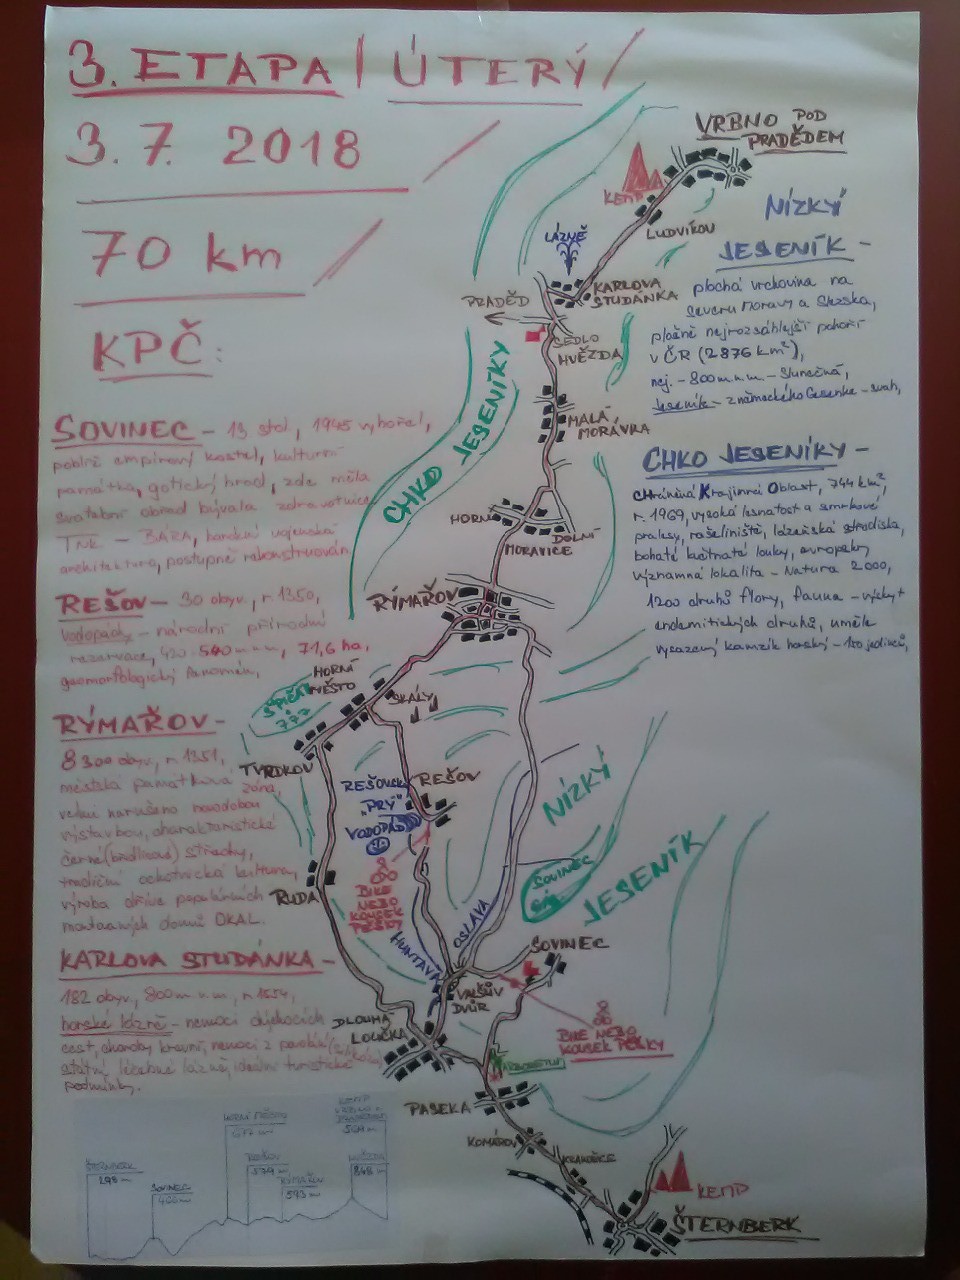 3. ETAPA / ÚTERÝ /
3. 7. 2018 /
70 km /
KPČ:
SOVINEC – 13 stol, 1945 vyhořel,
poblíž empírový kostel, kulturní
památka, gotický hrad, zde měla
svatební obřad bývalá zdravotnice
TNK – BÁRA, barokní vojenská
architektura, postupně rekonstruován
REŠOV – 30 obyv, r. 1350,
vodopády – národní přírodní
rezervace, 71,6 ha,
geomorfologický fenomén,
RÝMAŘOV –
8 300 obyv, r. 1351,
městská památková zóna,
velmi narušeno novodobou
výstavbou, charakteristické
černé (břidlicové) střechy,
tradiční ochotnická kultura,
výroba dříve populárních
montovaných domů OKAL.
KARLOVA STUDÁNKA –
182 obyv, 800 m n. m,
horské lázně – nemoci dýchacích
cest, choroby krevní, nemoci z povolání
státní léčebné lázně, ideální turistické
podmínky.
VRBNO POD
PRADĚDEM
KEMP
LUDVÍKOV
LÁZNĚ
KARLOVA
STUDÁNKA
PRADĚD
SEDLO
HVĚZDA
MALÁ
MORÁVKA
CHKO JESENÍKY
HORNÍ
DOLNÍ
MORAVICE
RÝMAŘOV
HORNÍ
MĚSTO
SKÁLY
TVRDKOV
REŠOV
REŠOVSKÝ
"PRŮ"
VODOPÁD
RUDA
BIKE
NEBO
KOUSEK
PĚŠKY
HUNTAVA
OSLAVA
NÍZKÝ
JESENÍK
SOVINEC
SOVINEC
VALŠŮV
DVŮR
DLOUHÁ
LOUČKA
BIKE NEBO
KOUSEK PĚŠKY
PASEKA
KOMÁROV
KRAKOŘICE
KEMP
ŠTERNBERK
NÍZKÝ
JESENÍK –
plochá vrchovina na
severu Moravy a Slezska,
plošně nejrozsáhlejší pohoří
v ČR (2876 km²),
nej. – 800 m n. m – Slunečná,
Jeseník – z německého Gesenke – svah,
CHKO JESENÍKY –
CHráněná Krajinná Oblast, 744 km²,
r. 1969, vysoká lesnatost a smrkové
pralesy, rašeliniště, lázeňská střediska,
bohaté květnaté louky, evropsky
významná lokalita – Natura 2000,
1200 druhů flory, fauna – výskyt
endemitických druhů, uměle
vysazený kamzík horský
ŠTERNBERK
SOVINEC
HORNÍ MĚSTO
REŠOV
579 m
RÝMAŘOV
593 m
KEMP
848 m